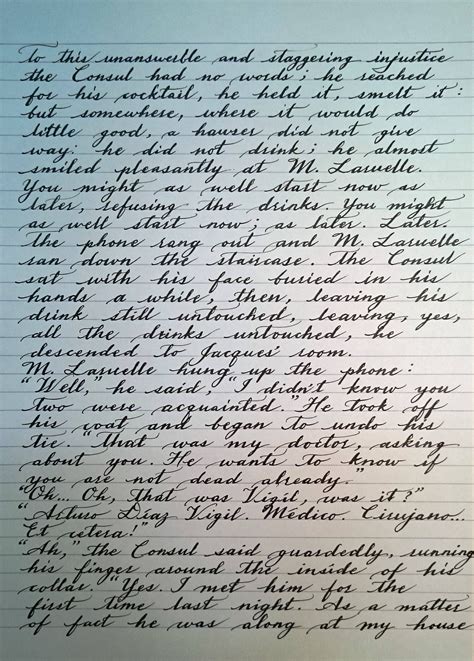 to this unanswerble and staggering injustice
the Consul had no words; he reached
for his cocktail, he held it, smelt it:
but somewhere, where it would do
little good, a hawser did not give
way: he did not drink; he almost
smiled pleasantly at M. Laruelle.
You might as well start now as
later, refusing the drinks. You might
as well start now; as later. Later.
the phone rang out and M. Laruelle
ran down the staircase. the Consul
sat with his face buried in his
hands a while, then, leaving his
drink still untouched, leaving, yes,
all the drinks untouched, he
descended to Jacques' room.
M. Laruelle hung up the phone:
"Well," he said, "I didn't know you
two were acquainted." He took off
his coat and began to undo his
tie. "that was my doctor, asking
about you. He wants to know if
you are not dead already."
"Oh... Oh, that was Vigil, was it?"
"Arturo Díaz Vigil. Médico. Cirujano...
Et cetera!"
"Ah," the Consul said guardedly, running
his finger around the inside of his
collar. "Yes. I met him for the
first time last night. As a matter
of fact he was along at my house